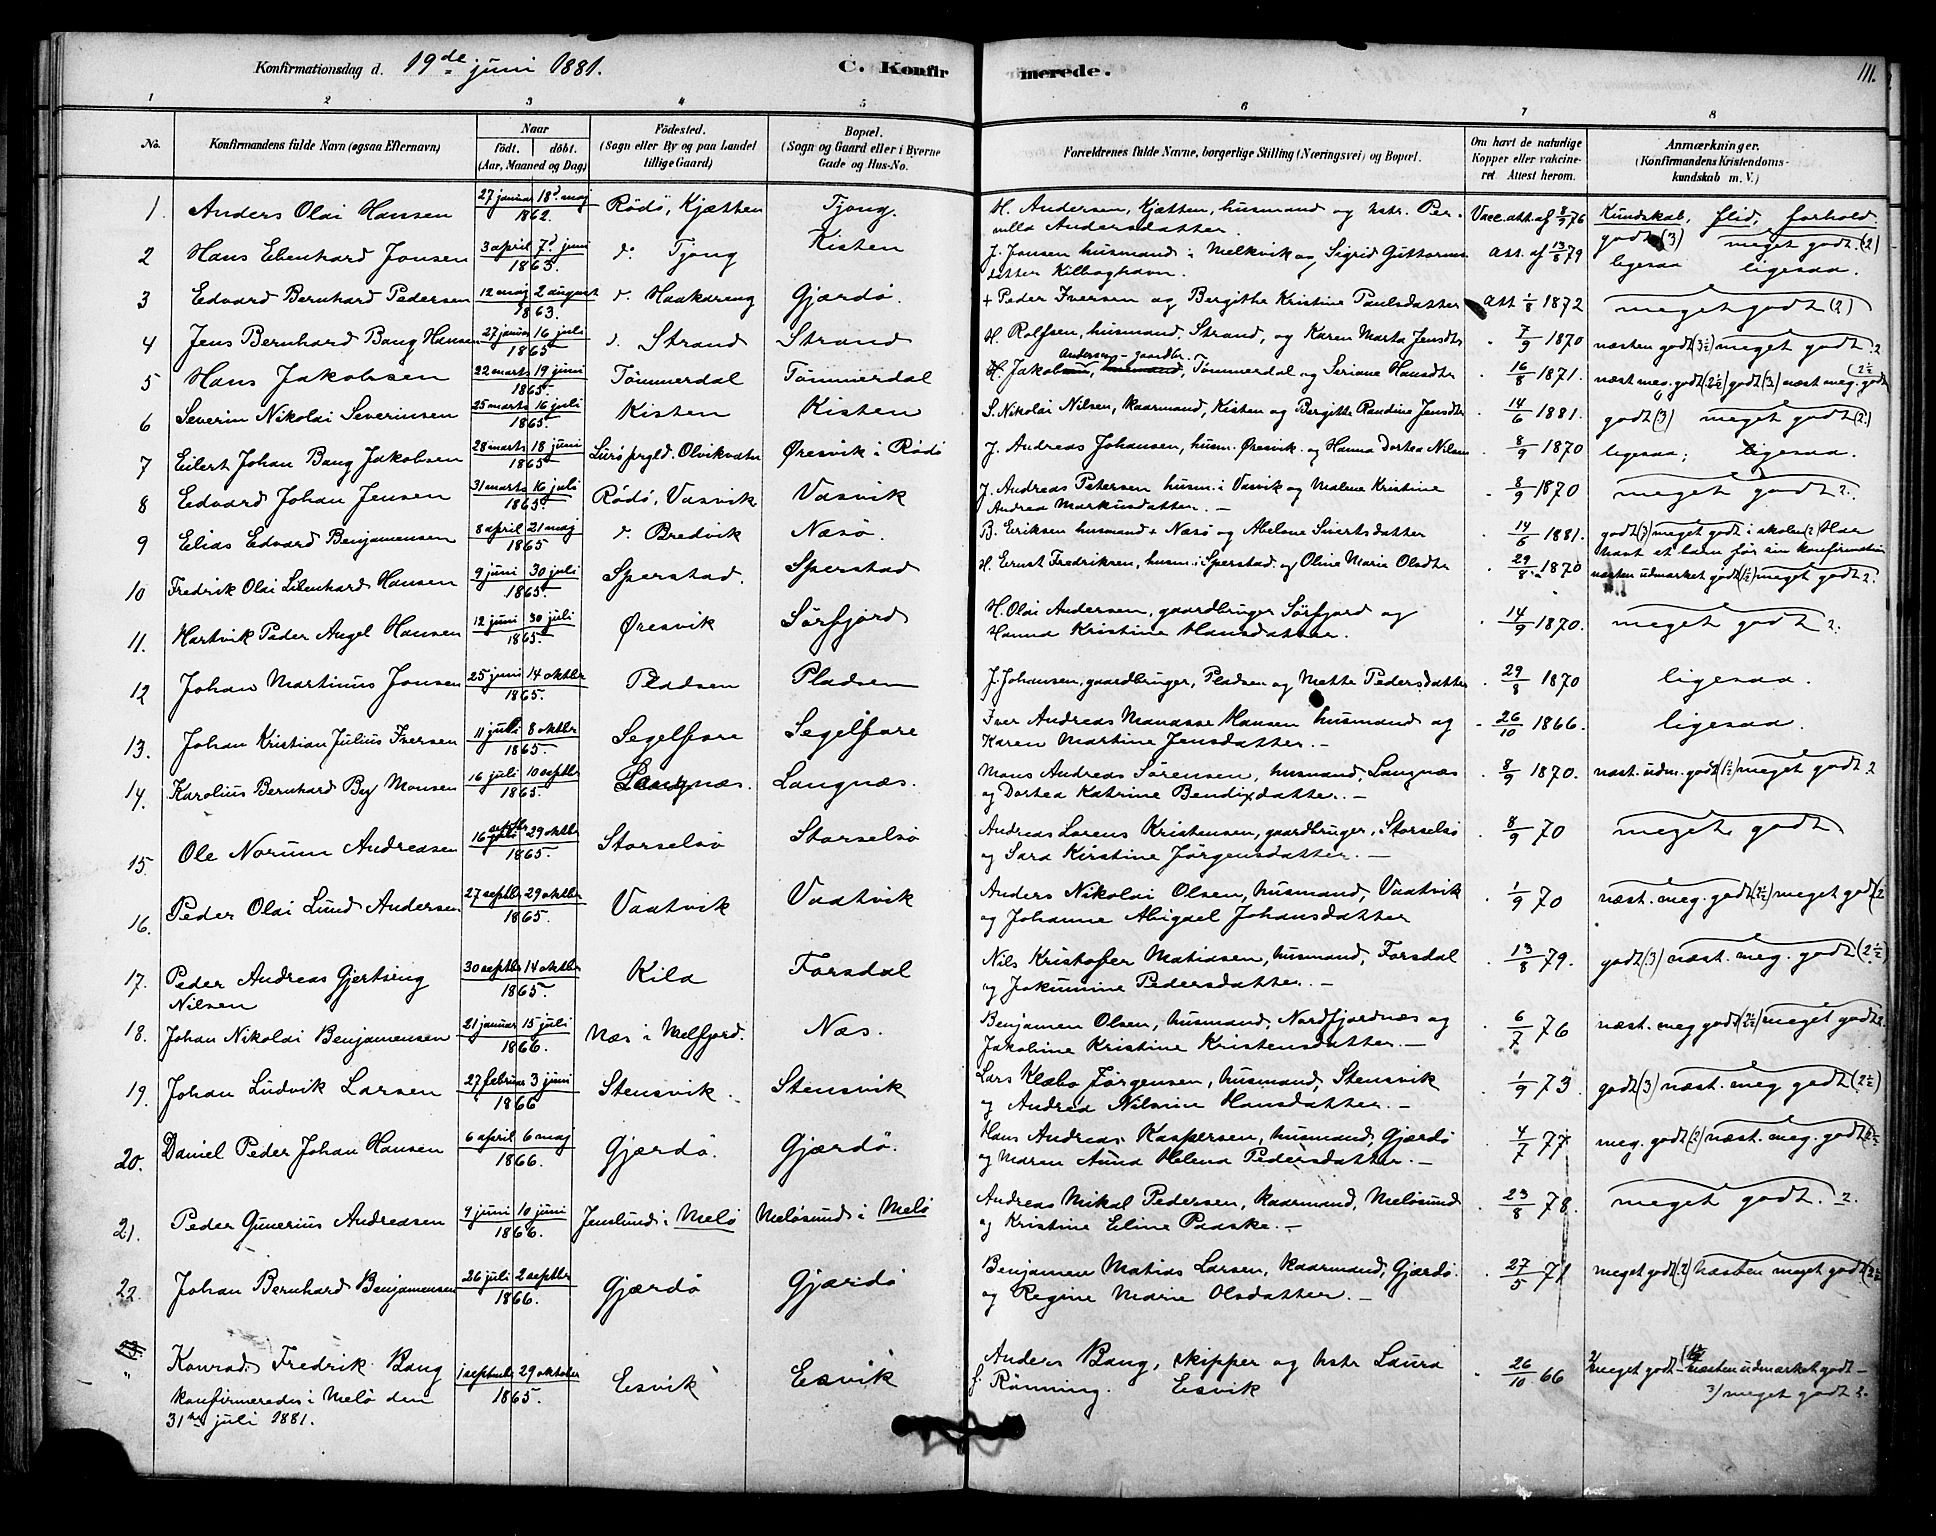 Konfirmationsdag d. 19de juni 1881. C. Konfirmerede. 111.
1 2 3 4 5 6 7 8
No. Konfirmandens fulde Navn (ogsaa Efternavn) Naar födt. döbt. (Aar, Maaned og Dag) Födested. (Sogn eller By og paa Landet tillige Gaard) Bopæl. (Sogn og Gaard eller i Byerne Gade og Hus-No. Forældrenes fulde Navne, borgerlige Stilling (Næringsvei) og Bopæl. Om havt de naturlige Kopper eller vakcineret. Attest herom. Anmærkninger. (Konfirmandens Kristendomskundskab m. V.)
1. Anders Olai Hansen 27 januar 18d maj 1862. Rödö, Kjætten Tjong. H. Andersen, Kjætten, husmand og hstr. Pernilla Andersdatter. Vacc. att. af 8/9 76 Kundskab, flid, forhold. godt (3) meget godt (2)
2 Hans Ebenhard Jonsen 3 april 7d juni 1863. d. Tjong Kisten J. Jonsen husmand i Melkvik og Sigrid Guttormsdatter Kilboghavn. att. af 13/8 79 ligesaa ligesaa.
3 Edvard Bernhard Pedersen 12 maj 2 august 1863. d. Haakdreng Gjærdö. + Peder Iversen og Bergithe Kristine Paulsdatter att 1/8 1872 meget godt (2)
4 Jens Bernhard Bang Hansen 27 januar 16 juli 1865 d. Strand Strand H. Rolfsen, husmand, Strand, og Karen Marta Jensdtr 7/9 1870 næsten godt (3½) meget godt. 2
5 Hans Jakobsen 22 marts 19 juni 1865. Tömmerdal Tömmerdal H. Jakobsen, Andersen - gaardbr. husmand, Tömmerdal og Seriane Hansdtr 16/8 1871. næst meg. godt (2½) godt (3) næst meg. godt (2½
6 Severin Nikolai Severinsen 25 marts 16 juli 1865. Kisten Kisten S. Nikolai Nilsen, kaarmand, Kisten og Bergitte Randine Jensdtr 14/6 1881. godt (3) meget godt (2.)
7 Eilert Johan Bang Jakobsen 28 marts 18 juni 1865 Luröprgld. Olvikvatn Øresvik i Rödö J. Andreas Johansen, husm. Øresvik. og Hanna Dortea Nilsen 8/9 1870 ligesaa; ligesaa.
8 Edvard Johan Jensen 31 marts 16 juli 1865. Rödö, Vasvik Vasvik J. Andreas Petersen husm. i Vasvik og Malene Kristine Andrea Markusdatter. — 8/9 1870 meget godt 2.
9 Elias Edvard Benjamensen 8 april 21 maj 1865 d. Bredvik Næsö. B. Eriksen husmand + Næsö og Abelone Sivertsdatter 14/6 1881. godt (3) meget godt i skolen (2) Har havt et barn för sin konfirmation
10 Fredrik Olai Libenhard Hansen 9 juni 30 juli 1865. Sperstad. Sperstad H. Ernst Fredriksen, husm. i Sperstad. og Oline Marie Olsdtr 29/8 1870 næsten udmærket godt (1½) meget godt 2.
11. Hartvik Peder Angel Hansen 12 juni 30 juli 1865. Øresvik Sörfjord H. Olai Andersen, gaardbruger Sörfjord og Hanna Kristine Hansdatter. 14/9 1870. meget godt 2.
12 Johan Martinus Jonsen 25 juni 14 oktbr 1865. Pladsen Pladsen J. Johansen, gaardbruger, Pladsen og Mette Pedersdatter 29/8 1870 ligesaa.
13. Johan Kristian Julius Iversen 11 juli 8 oktbr 1865. Segelfore Segelfore Iver Andreas Manasse Hansen husmand og Karen Martine Jensdatter. — 26/10 1866. ligesaa.
14. Karolius Bernhard Boy Monsen 16 juli 10 septbr 1865. Langnæs. Langnæs. Mons Andreas Sörensen, husmand, Langnæs og Dortea Katrine Bendixdatter. — 8/9 1870. næst. udm. godt (1½) meget godt 2
15. Ole Norum Andreasen 16 septbr juli 29 oktbr 1865. Storselsö Storselsö Andreas Lorens Kristensen, gaardbruger, Storselsö og Sara Kirstine Jörgensdatter. — 8/9 70 meget godt
16. Peder Olai Lund Andersen 27 septbr 29 oktbr 1865. Vaatvik Vaatvik Anders Nikolai Olsen, husmand, Vaatvik og Johanne Abigael Johansdatter 1/9 70 næst. meg. godt (2½) meget godt (2
17. Peder Andreas Gjertsing Nilsen 30 septbr 14 oktbr 1865. Kila Forsdal Nils Kristofer Matiasen, husmand, Forsdal og Jakumine Pedersdatter. — 13/8 79. godt (3) næst. meg. godt (2½)
18. Johan Nikolai Benjamensen 21 januar 15 juli 1866. Næs i Melfjord. Næs. Benjamen Olsen, husmand, Nordfjordnæs og Jakobine Kristine Kristensdatter. — 6/7 76 næst. meg godt (2½) meget godt 2.
19. Johan Ludvik Larsen 27 februar 3 juni 1866 Stensvik. Stensvik Lars Klæbo Jörgensen, husmand, Stensvik og Andrea Nilsine Hansdatter. — 1/9 73 godt (3) næst. meg godt (2½)
20. Daniel Peder Johan Hansen 6 april 6 maj 1866. Gjærdö. Gjærdö. Hans Andreas Kaspersen, husmand, Gjærdö og Maren Anna Helena Pedersdatter. — 4/7 77 meg. godt (2) næst. meg. godt (2½
21. Peder Gunerius Andreasen 9 juni 10 juni 1866. Jenslund i Melö Melösund i Melö Andreas Mikal Pedersen, kaarmand, Melösund og Kristine Eline Paaske. — 23/8 78. meget godt. 2.
22. Johan Bernhard Benjamensen 26 juli 2 septbr 1866. Gjærdö Gjærdö Benjamen Matias Larsen, kaarmand, Gjærdö. og Regine Marie Olsdatter. — 27/5 71 meget godt (2) næsten meget godt (2½
23. " Konrad Fredrik Bang konfirmeredes i Melö den 31te juli 1881. 1 septembr 29 oktober 1865. Esvik Esvik Anders Bang, skipper og hstr Laura f. Rönning. Esvik 26/10 66 2/ meget godt - (1½ næsten udmærket godt — 3/ meget godt 2.